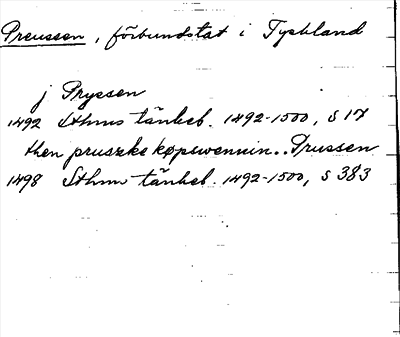 Preussen, förbundstat i Tyskland
j Pryssen
1492 Sthms tänkeb. 1492-1500, s 17
then pruszke køpswennin.. Prussen
1498 Sthms tänkeb. 1492-1500, s 383